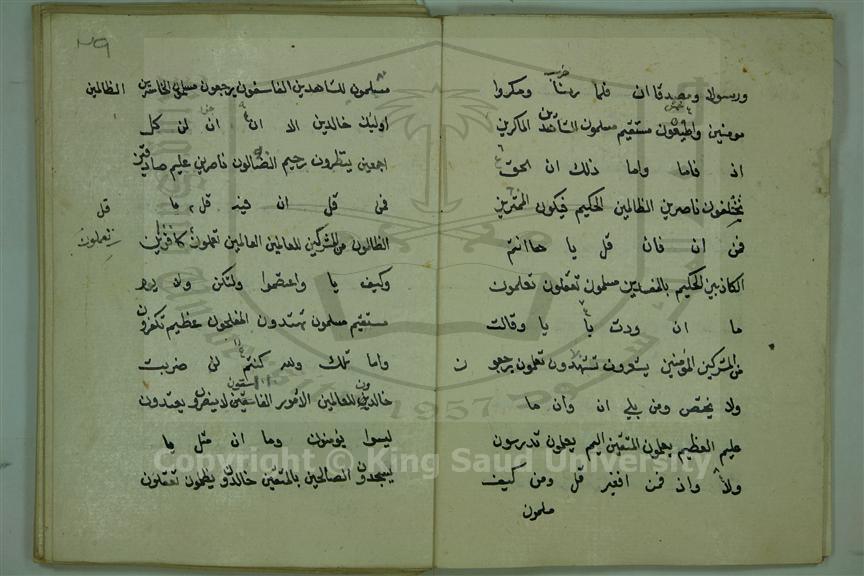 ورسولا ومصدقا ان فلما ربنا ومكروا
مومنين واطيعون مستقيم مسلمون الشاهدين الماكرين
اذ فاما واما ذلك ان الحق
تختلفون ناصرين الظالمين الحكيم فيكون الممترين
فمن ان فان قل يا ها انتم
الكاذبين الحكيم بالمفسدين مسلمون تعقلون تعلمون
ما ان ودت يا يا وقالت
من المشركين المؤمنين يشعرون تشهدون تعلمون يرجعون
ولا يختص ومن بلى ان وان ما
عليم العظيم يعلمون المتقين اليم يعلمون تدرسون
ولا واذ فمن افغير قل ومن كيف
مسلمون
٣٩
مسلمون الشاهدين الفاسقون يرجعون مسلمون الخاسرين الظالمين
اولئك خالدين الا ان ان لن كل
اجمعين ينظرون رحيم الضالون ناصرين عليم صادقين
فمن قل ان فيه قل ما
قل
الظالمون من المشركين للعالمين العالمين تعملون كافرين
تعملون
وكيف يا واعتصموا ولتكن ولا يوم
مستقيم مسلمون تهتدون المفلحون عظيم تكفرون
واما تلك ولله كنتم لن ضربت
خالدون للعالمين الامور الفاسقون لا ينصرون يعتدون
ليسوا يؤمنون وما ان مثل يا
يسجدون الصالحين بالمتقين خالدون يظلمون تعقلون
Copyright © King Saud University
1957